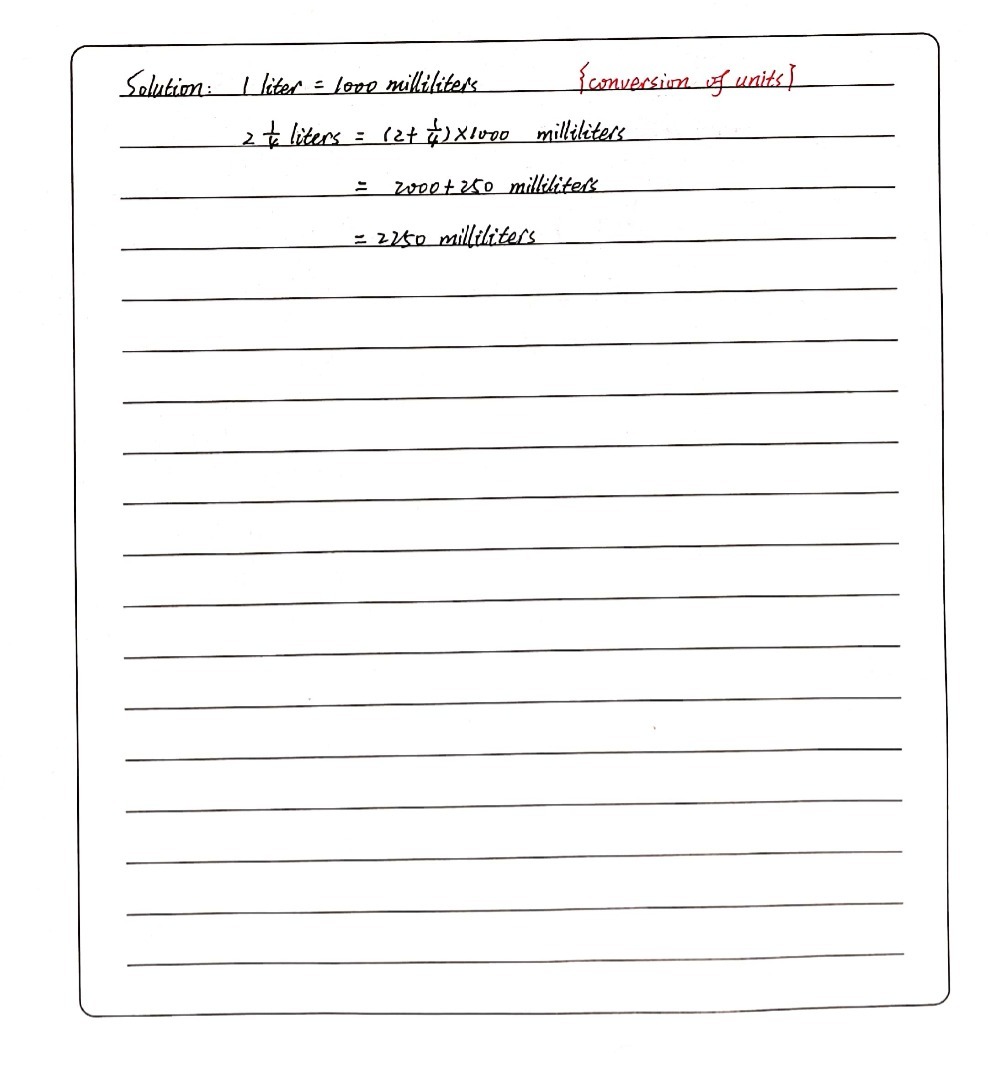 Solution: 1 liter = 1000 milliliters {conversion of units}
2 1/4 liters = (2+ 1/4)×1000 milliliters
= 2000+250 milliliters
= 2250 milliliters